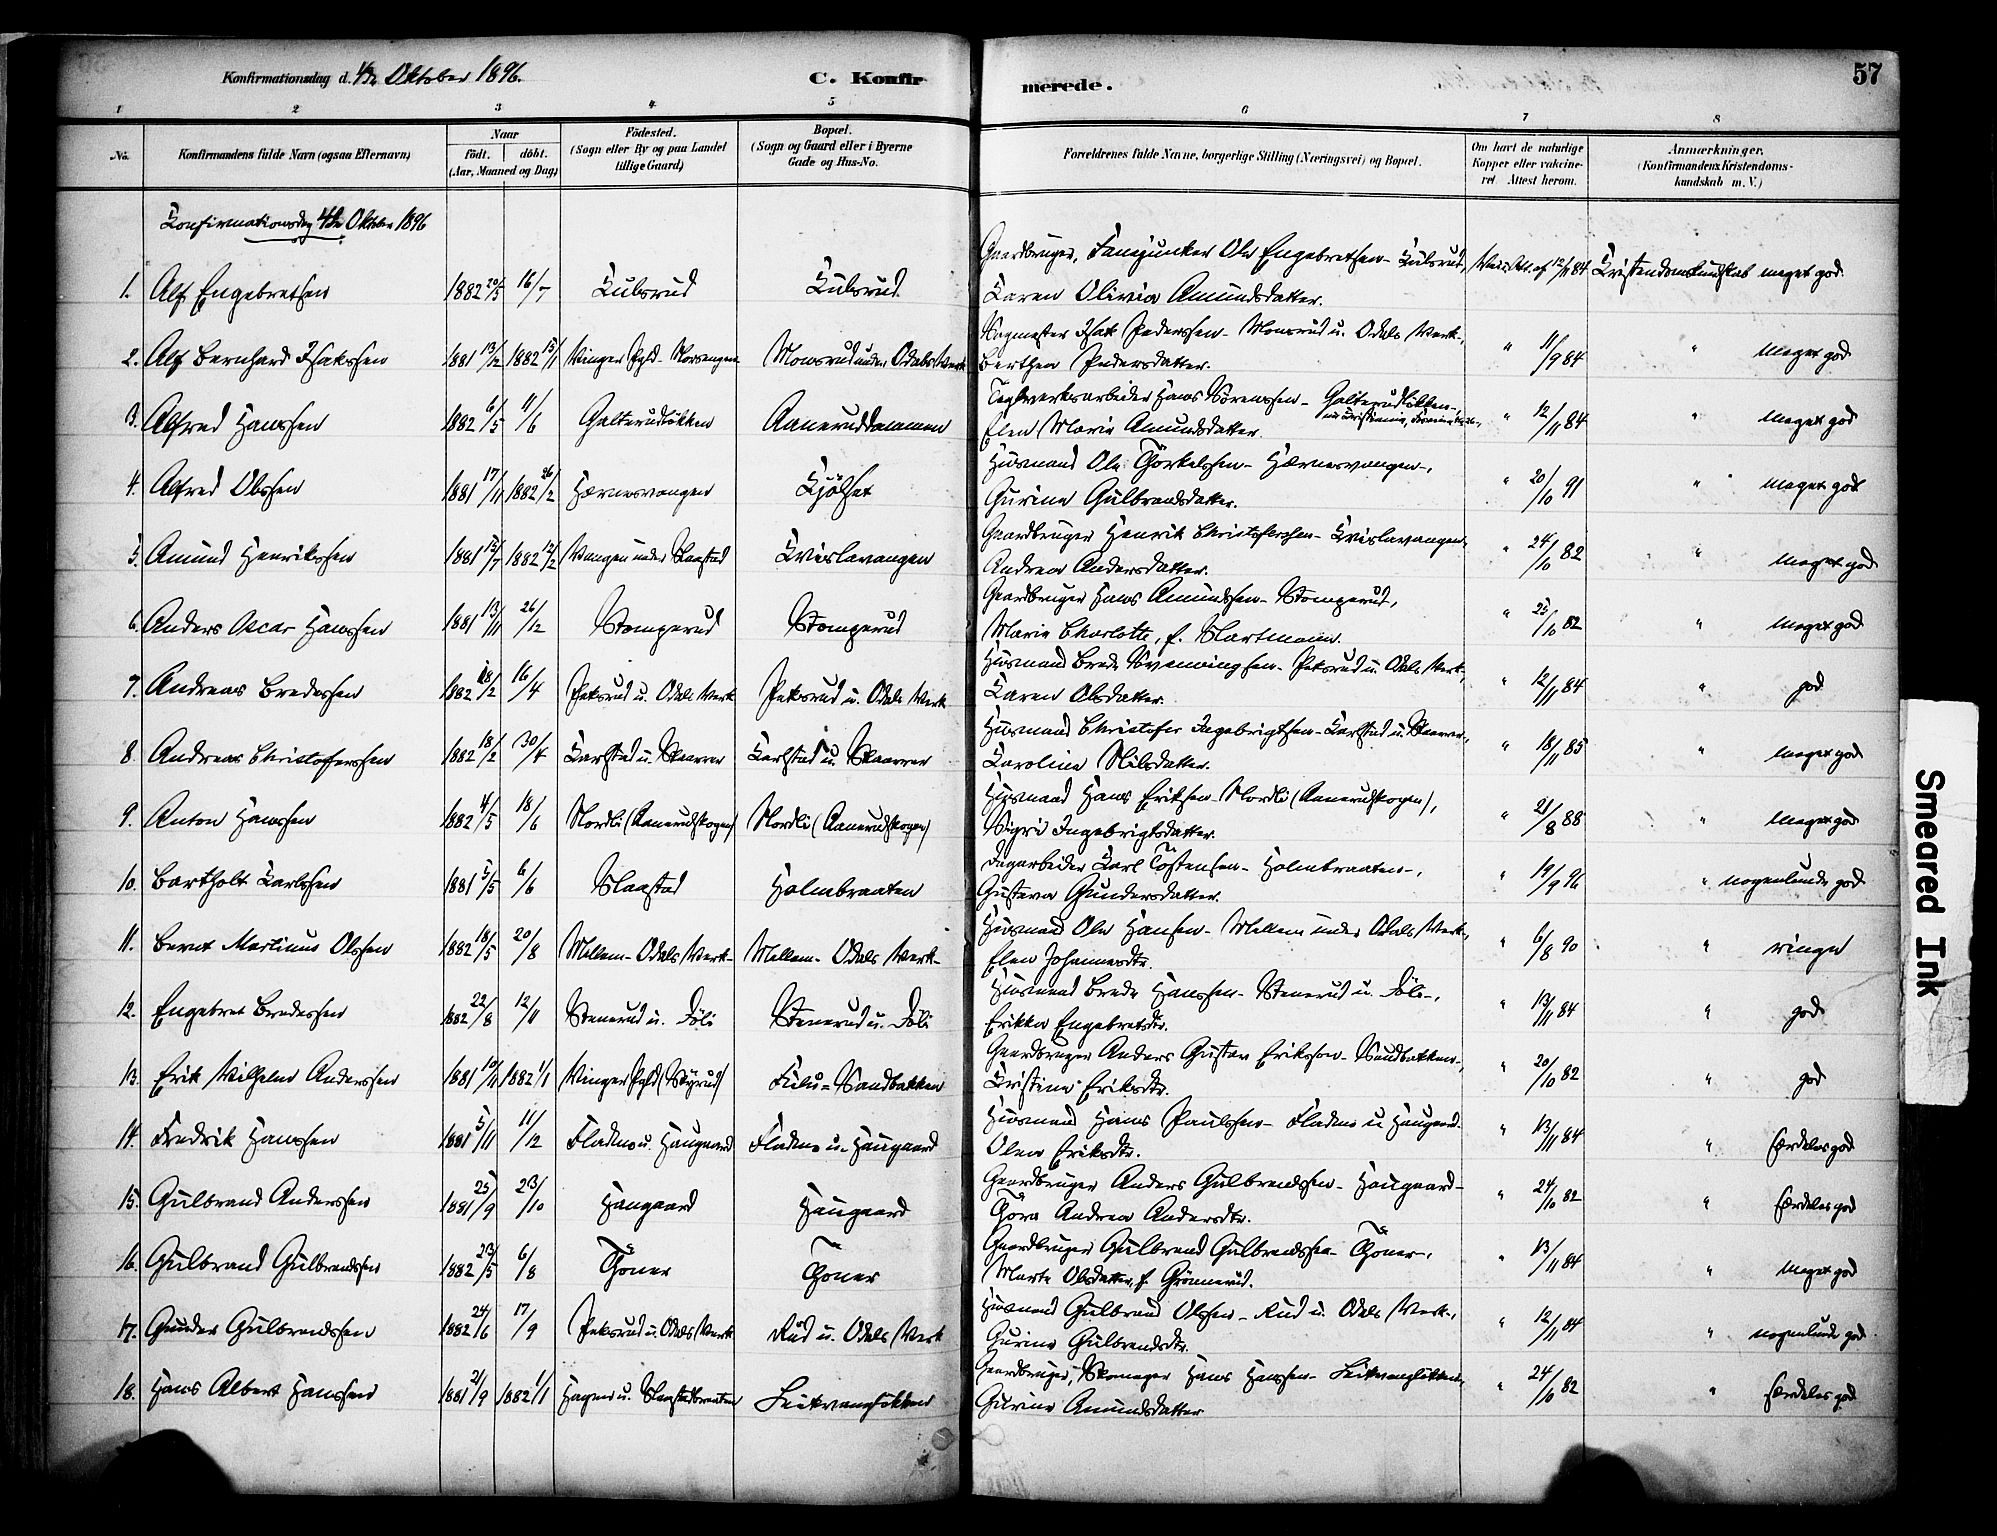 Konfirmationsdag d. 4de Oktober 1896.
C. Konfir
merede.
57
1 2 3 4 5 6 7 8
No. Konfirmandens fulde Navn (ogsaa Efternavn)
Naar
födt. döbt.
(Aar, Maaned og Dag)
Födested.
(Sogn eller By og paa Landet
tillige Gaard)
Bopæl.
(Sogn og Gaard eller i Byerne
Gade og Hus-No.
Forældrenes fulde Navne, borgerlige Stilling (Næringsvei) og Bopæl.
Om havt de naturlige
Kopper eller vakcine-
ret. Attest herom.
Anmærkninger,
(Konfirmandens Kristendoms-
kundskab m. V.)
Confirmationsdag 4de Oktober 1896
Gaardbruger, Fanejunker Ole Engebretsen - Kulsrud,
1. Alf Engebretsen 1882 20/5 16/7 Kulsrud Kulsrud Karen Olivia Amundsdatter. Att. af 12/11 84 Kristendomskundskab meget god.
2. Alf Bernhard Isakssen 1881 13/12 1882 15/1 Vinger Pgld. Monsrud under Odals Værk Isak Pedersen - Monsrud u. Odals Værk -,
Berthea Pedersdatter. " 11/9 84 " Meget god
3. Alfred Hanssen 1882 6/5 11/6 Galterudløkken Aaneruddammen Teglverksarbeider Hans Sørenssen - Galterudløkken -,
Elen Marie Amundsdatter. " 12/11 84 " meget god
4. Alfred Olssen 1881 17/11 1882 26/2 Hærnesvangen Kjølset Husmand Ole Torkelssen - Hærnesvangen -,
Gurine Gulbrandsdatter. " 20/10 91 " meget god
5. Amund Henrikssen 1881 1882 12/2 Vangen under Slaastad Kvislavangen Gaardbruger Henrik Christoferssen - Kvislavangen,
Andrea Andersdatter. " 24/10 82 " meget god
6. Anders Oscar Hanssen 1881 13/11 26/12 Stomperud Stomperud Gaardbruger Hans Amundssen - Stomperud,
Marie Charlotte, f. Hartmann. " 25/10 82 " meget god
7. Andreas Bredessen 1882 18/2 16/4 Peksrud u. Odals Værk Peksrud u. Odals Værk Husmand Brede Svenningsen - Peksrud u. Odals Værk,
Karen Olsdatter. " 12/11 84 " god
8. Andreas Christoferssen 1882 18/2 30/4 Karlstad u. Skaarer Karlstad u. Skaarer Husmand Christofer Ingebrigtsen - Karlstad u. Skaarer,
Karoline Nilsdatter. " 18/11 85 " meget god
9. Anton Hanssen 1882 4/5 18/6 Nordli (Aanerudskogen) Nordli (Aanerudskogen) Husmand Hans Eriksen - Nordli (Aanerudskogen),
Sigri Ingebrigtsdatter. " 21/8 88 " meget god
10. Bartholt Karlssen 1881 5/5 6/6 Slaastad Holmbraaten Dagarbeider Karl Tostensen - Holmbraaten -,
Gustava Gundersdatter. " 19/9 96 " nogenlunde god
11. Bernt Martinus Olssen 1882 18/5 20/8 Mellem - Odals Værk - Mellem - Odals Værk - Husmand Ole Hansen - Mellem under Odals Værk,
Elen Johannesdtr. " 6/8 90 " ringe
12. Engebret Bredessen 1882 22/8 12/11 Stenerud u. Døli Stenerud u. Døli Husmand Brede Hanssen - Stenerud u. Døli -,
Erikka Engebretsdtr. " 13/11 84 " god
13. Erik Wilhelm Anderssen 1881 10/11 1882 1/1 Vinger Pgld (Skyrud) Fulu = Sandbakken Gaardbruger Anders Gustav Erikssen - Sandbakken -,
Kristine Eriksdtr. " 20/10 82 " god
14. Fredrik Hanssen 1881 5/11 11/12 Fladmo u. Haugaard Fladmo u. Haugaard Husmand Hans Paulssen - Fladmo u. Haugaard.
Olea Eriksdtr. " 13/11 84 " særdeles god
15. Gulbrand Anderssen 1881 25/9 23/10 Haugaard Haugaard Gaardbruger Anders Gulbrandssen - Haugaard -
Thora Andrea Andersdtr. " 24/10 82 " særdeles god
16. Gulbrand Gulbrandssen 1882 23/5 6/8 Thoner Thoner Gaardbruger Gulbrand Gulbrandssen - Thoner -,
Marte Olsdatter, f. Grønnerud. " 13/11 84 " Meget god
17. Gunder Gulbrandssen 1882 24/6 17/9 Peksrud u. Odals Værk Rud u. Odals Værk Husmand Gulbrand Olssen - Rud u. Odals Værk -,
Gurine Gulbrandsdtr. " 12/11 84 " nogenlunde god
18. Hans Albert Hanssen 1881 21/9 1882 1/1 Hagen u. Slaastadbraaten Leikvangløkken Gaardbruger, Skomager Hans Hanssen - Leikvangløkken,
Gurine Amundsdatter " 24/10 82 " særdeles god
Smeared Ink